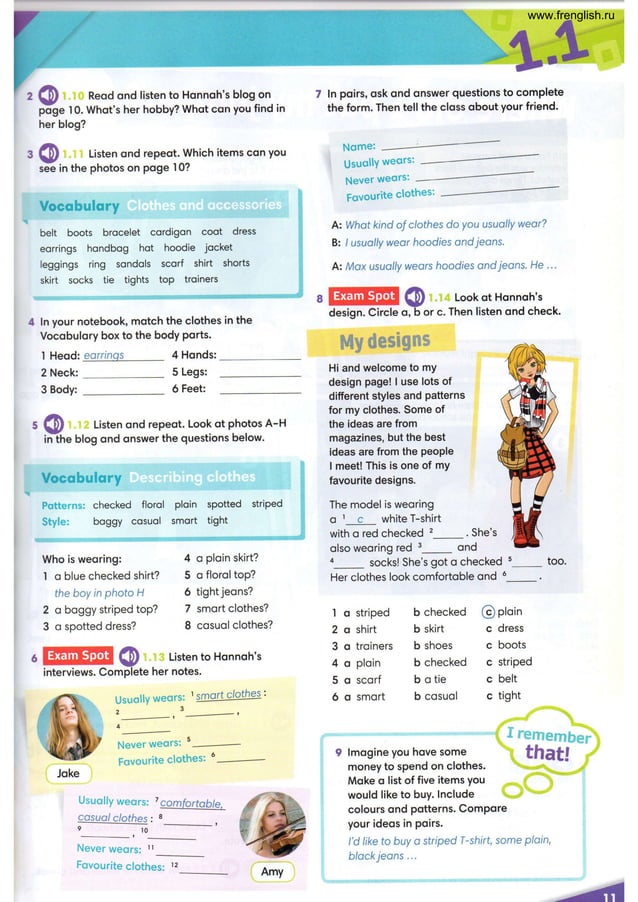 www.frenglish.ru
1.1
2 1.10 Read and listen to Hannah's blog on
page 10. What's her hobby? What can you find in
her blog?
3 1.11 Listen and repeat. Which items can you
see in the photos on page 10?
Vocabulary Clothes and accessories
belt boots bracelet cardigan coat dress
earrings handbag hat hoodie jacket
leggings ring sandals scarf shirt shorts
skirt socks tie tights top trainers
4 In your notebook, match the clothes in the
Vocabulary box to the body parts.
1 Head: earrings 4 Hands:
2 Neck: 5 Legs:
3 Body: 6 Feet:
5 1.12 Listen and repeat. Look at photos A–H
in the blog and answer the questions below.
Vocabulary Describing clothes
Patterns: checked floral plain spotted striped
Style: baggy casual smart tight
Who is wearing:
1 a blue checked shirt?
the boy in photo H
2 a baggy striped top?
3 a spotted dress?
4 a plain skirt?
5 a floral top?
6 tight jeans?
7 smart clothes?
8 casual clothes?
6 Exam Spot 1.13 Listen to Hannah's
interviews. Complete her notes.
Usually wears: 1 smart clothes :
2 , 3 ,
4
Never wears: 5
Favourite clothes: 6
Jake
Usually wears: 7 comfortable,
casual clothes : 8 ,
9 , 10
Never wears: 11
Favourite clothes: 12
Amy
7 In pairs, ask and answer questions to complete
the form. Then tell the class about your friend.
Name:
Usually wears:
Never wears:
Favourite clothes:
A: What kind of clothes do you usually wear?
B: I usually wear hoodies and jeans.
A: Max usually wears hoodies and jeans. He ...
8 Exam Spot 1.14 Look at Hannah's
design. Circle a, b or c. Then listen and check.
My designs
Hi and welcome to my
design page! I use lots of
different styles and patterns
for my clothes. Some of
the ideas are from
magazines, but the best
ideas are from the people
I meet! This is one of my
favourite designs.
The model is wearing
a 1 c white T-shirt
with a red checked 2 . She's
also wearing red 3 and
4 socks! She's got a checked 5 too.
Her clothes look comfortable and 6 .
1 a striped b checked c plain
2 a shirt b skirt c dress
3 a trainers b shoes c boots
4 a plain b checked c striped
5 a scarf b a tie c belt
6 a smart b casual c tight
I remember
that!
9 Imagine you have some
money to spend on clothes.
Make a list of five items you
would like to buy. Include
colours and patterns. Compare
your ideas in pairs.
I'd like to buy a striped T-shirt, some plain,
black jeans ...
11